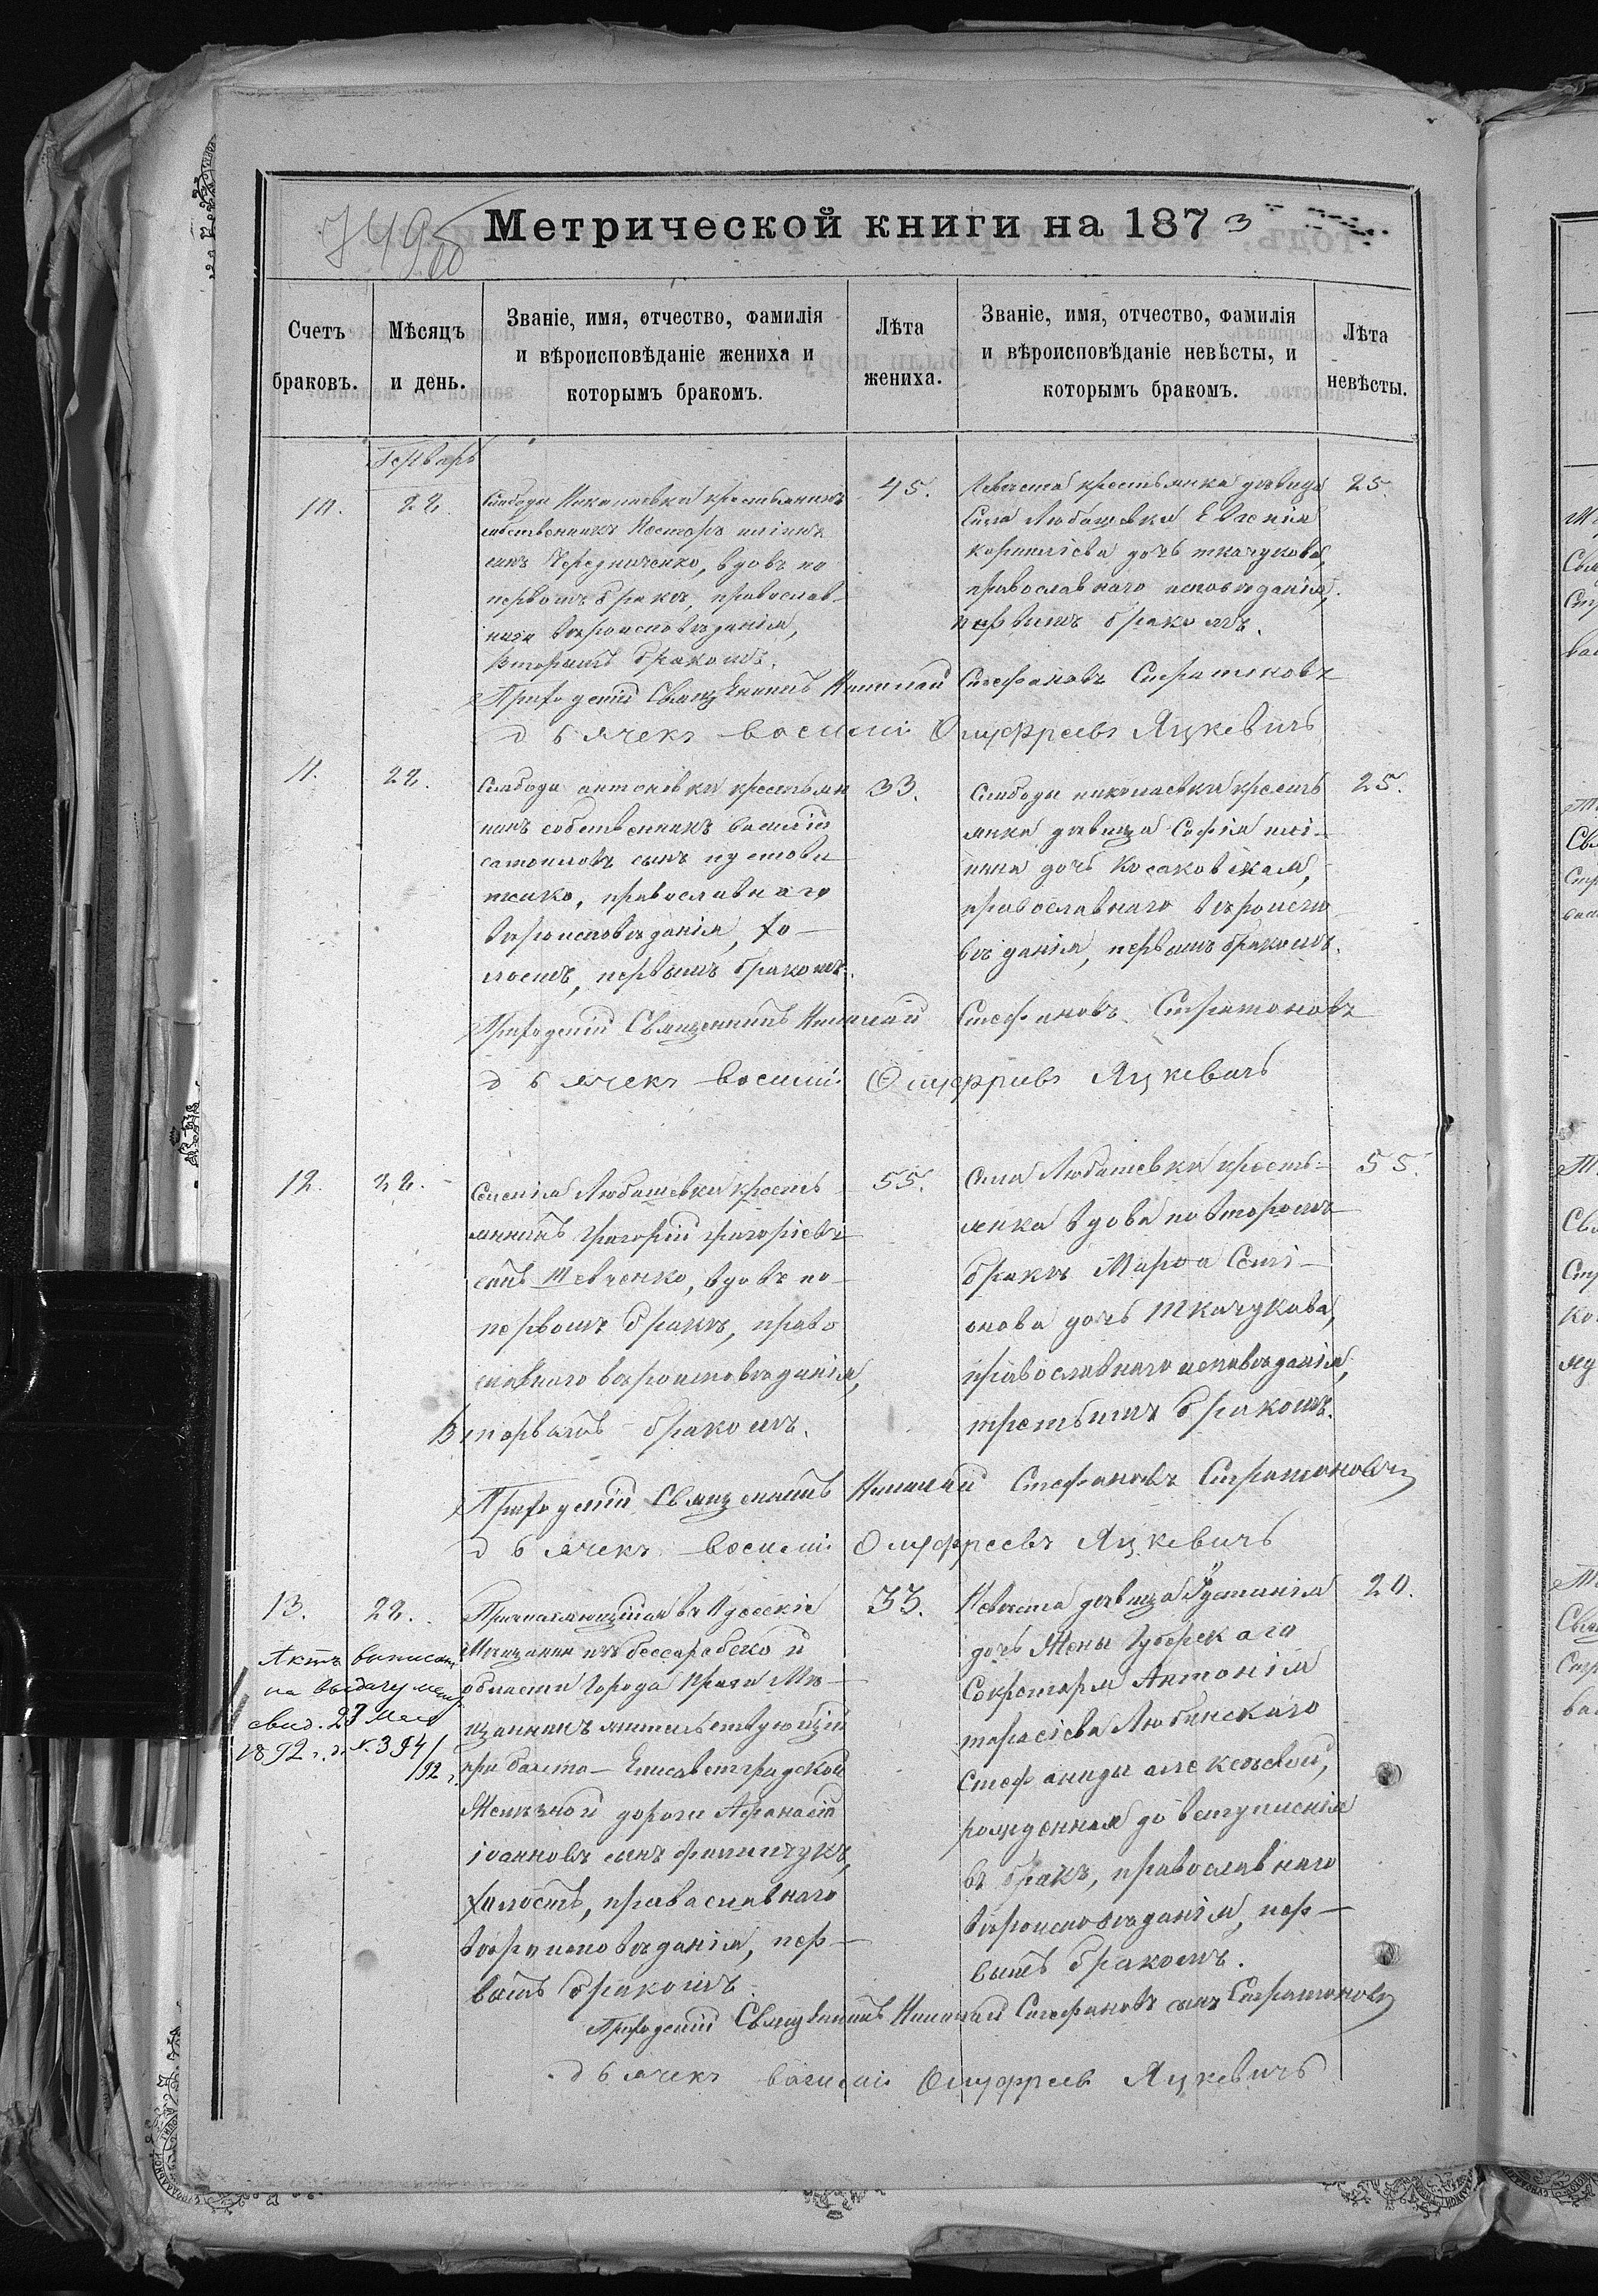 749об
Метрической книги на 1873
Счетъ браковъ.
Мѣсяцъ и день.
Званіе, имя, отчество, фамилія
и вѣроисповѣданіе жениха и
которымъ бракомъ.
Лѣта жениха.
Званіе, имя, отчество, фамилія
и вѣроисповѣданіе невѣсты, и
которымъ бракомъ.
Лѣта невѣсты.
10.
22.
Слободы Николаевки крестьянинъ
собственникъ Несторъ
сынъ Чередниченко, вдовъ по
первомъ бракѣ, православ-
наго вѣроисповѣданія,
вторымъ бракомъ.
45.
Невѣста крестьянка дѣвица
Села Любашевки Евгенія
Корнилiева дочь Ткачукова,
православнаго исповѣданія,
первымъ бракомъ.
25.
Приходскій Священникъ Николай Стефановъ Стратоновъ
дьячекъ Василій Онуфріевъ Яцкевичъ
11.
22.
Слободы Антоновки крестьян
инъ собственникъ Василій
Самоиловъ сынъ Пустови
тенко, православнаго
вѣроисповѣданія, хо-
лостъ, первымъ бракомъ.
33.
Слободы Николаевки кресть
янка дѣвица Софія
дочь Косаковская,
православнаго вѣроиспо
вѣданія, первымъ бракомъ.
25.
Приходскій Священникъ Николай Стефановъ Стратоновъ
дьячекъ Василій Онуфріевъ Яцкевичъ
12.
22.
Селенія Любашевки кресть
янинъ Григорій Григоріевъ
сынъ Шевченко, вдовъ по
первомъ бракѣ, право
славнаго вѣроисповѣданія,
вторымъ бракомъ.
55.
Села Любашевки кресть-
янка вдова по второмъ
бракѣ Марфа Семі-
онова дочь Ткачукова,
православнаго исповѣданія,
третьимъ бракомъ.
55.
Приходскій Священникъ Николай Стефановъ Стратоновъ
дьячекъ Василій Онуфреевъ Яцкевичъ
13.
22.
Актъ выписанъ
на выдачу метр.
свид. 23 Мая
1892 г. № 394/
92 г.
Причисляющійся въ Одесскіе
Мѣщанинъ изъ Бессарабской
области города Мѣ-
щанинъ жительствующій
при Балто-Елисаветградской
Желѣзной дороги Афанасій
Іоанновъ сынъ Филипчукъ,
холостъ, православнаго
вѣроисповѣданія, пер-
вымъ бракомъ.
33.
Невѣста дѣвица Іустинія
дочь Жены Губерскаго
Секретаря Антонія
Тарасіева Любинскаго
Стефаниды Алексѣевой,
рожденная до вступленія
въ бракъ, православнаго
вѣроисповѣданія, пер-
вымъ бракомъ.
20.
Приходскій Священникъ Николай Стефановъ сынъ Стратоновъ
дьячекъ Василій Онуфреевъ Яцкевичъ